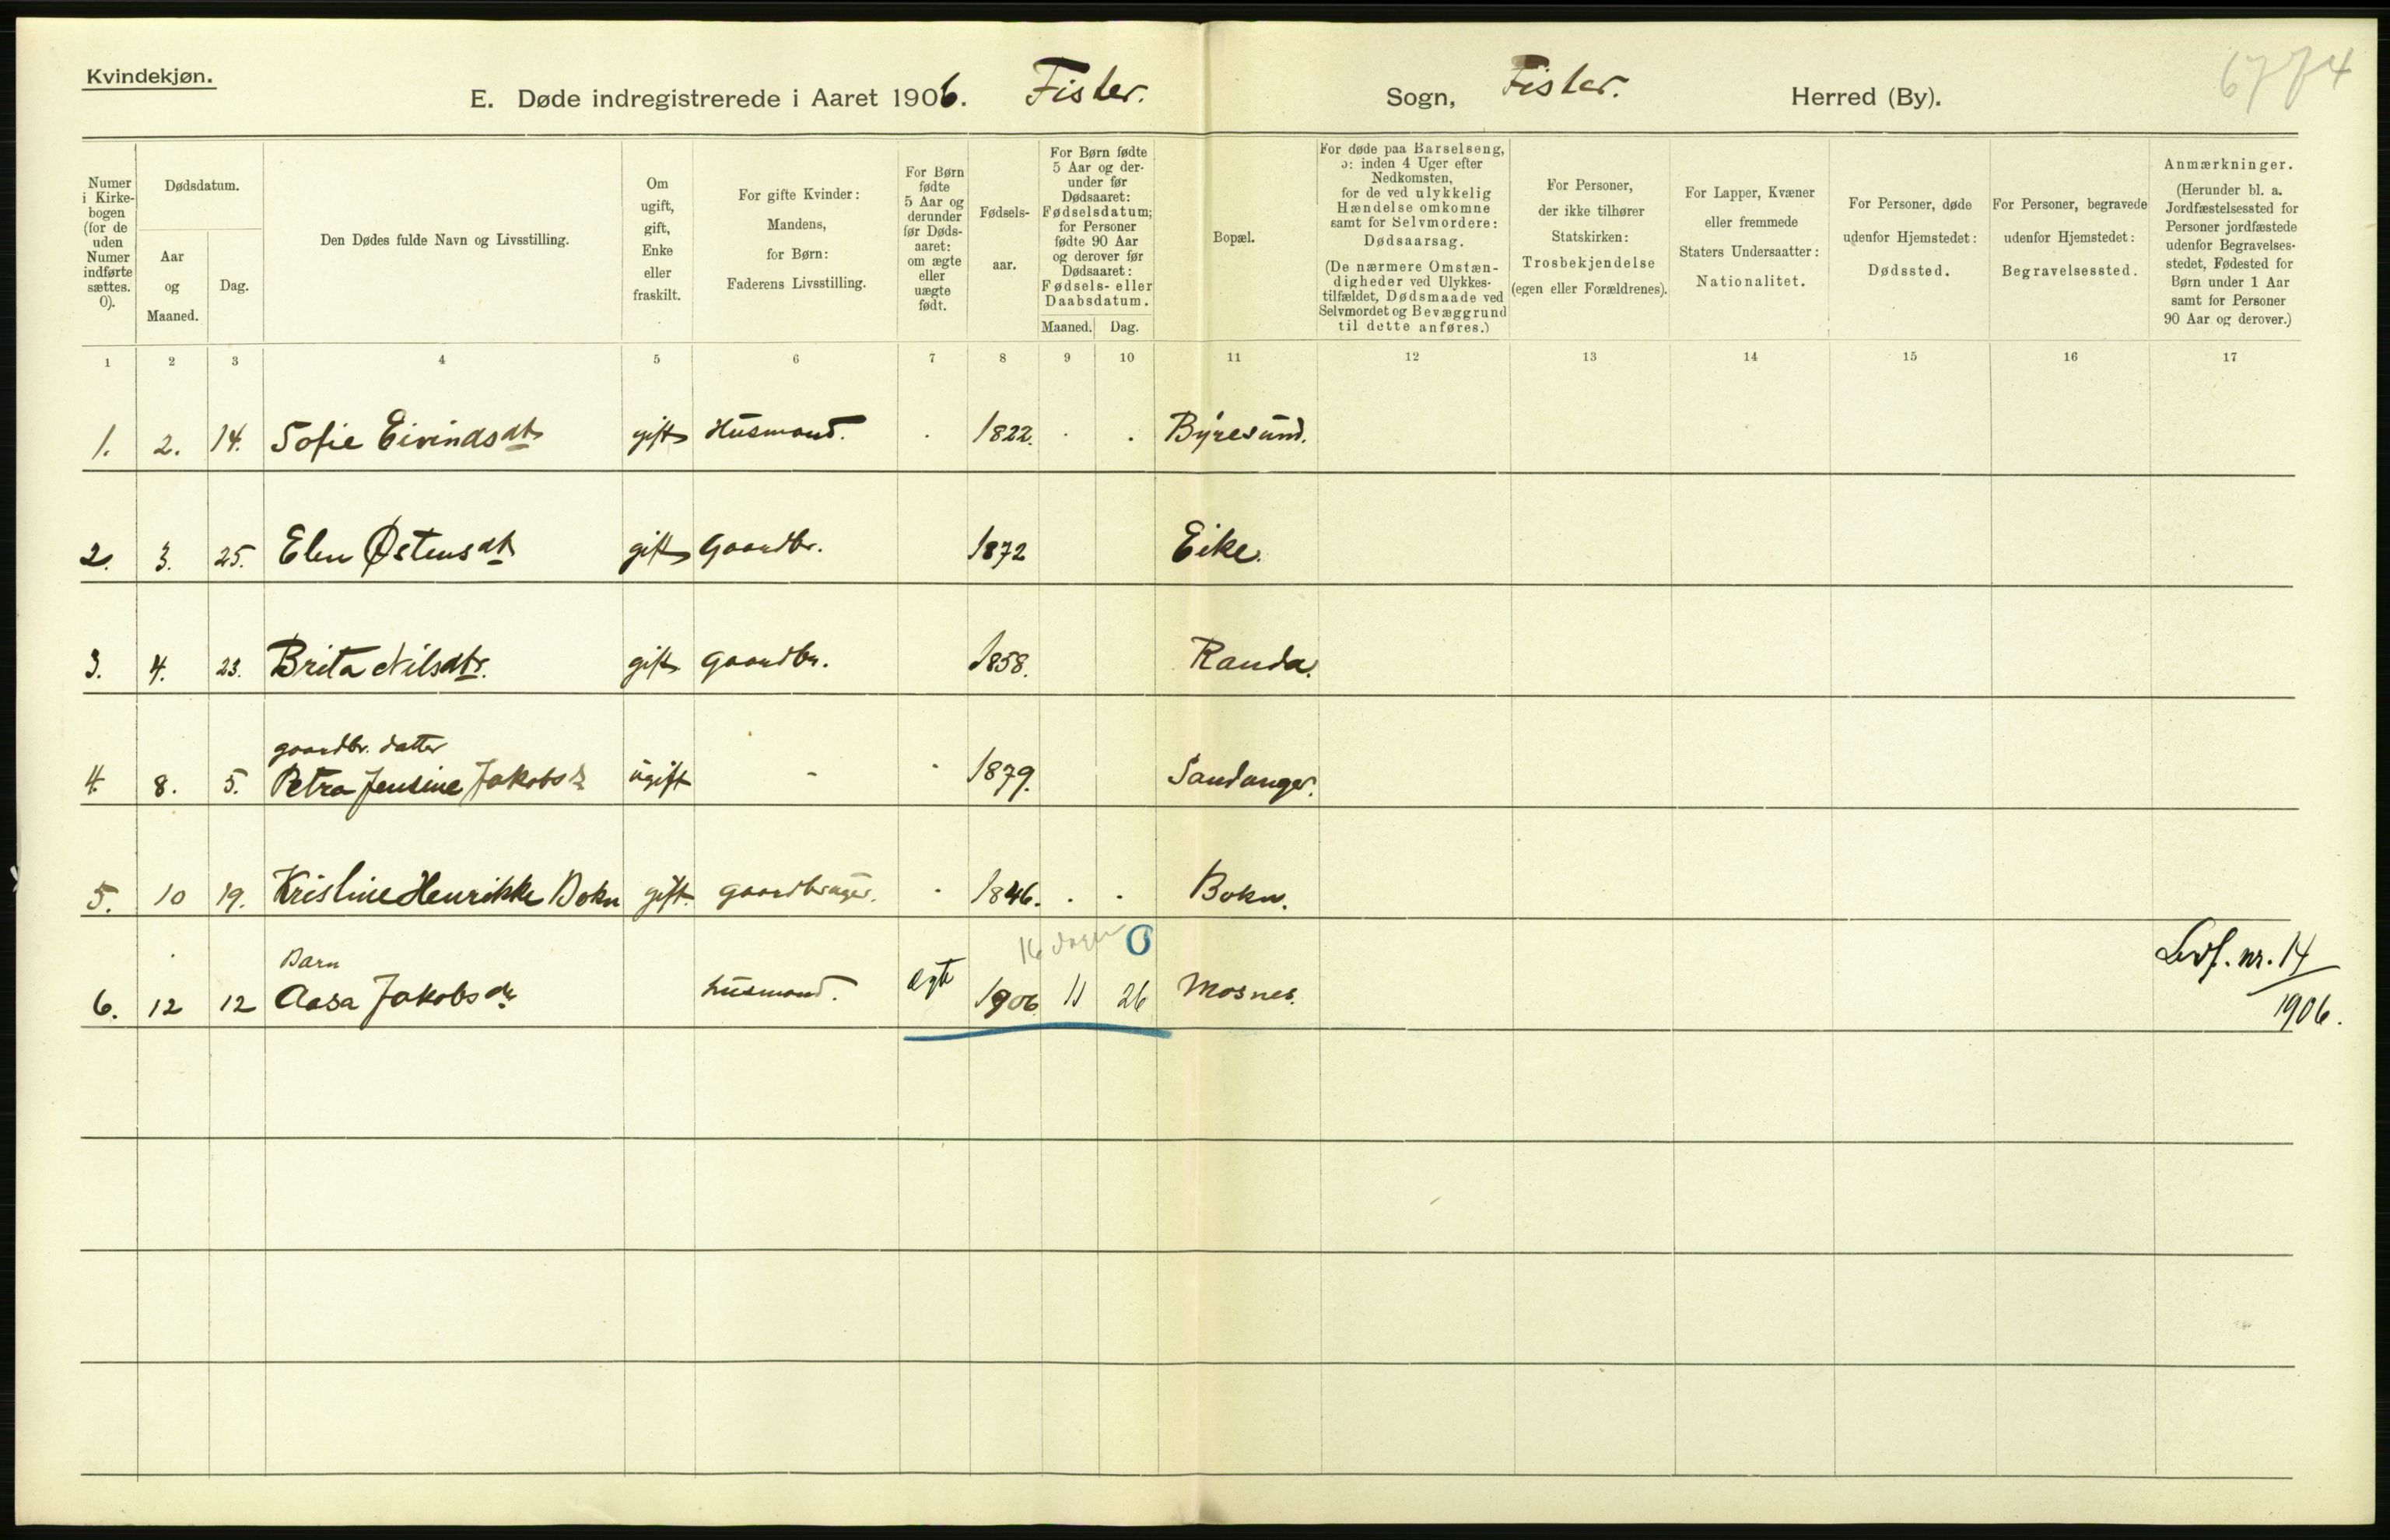 Kvindekjøn.
E. Døde indregistrerede i Aaret 1906. Fister. Sogn, Fister. Herred (By).
6774
Numer i Kirke-bogen (for de uden Numer indførte sættes. 0).
Dødsdatum.
Aar og Maaned.
Dag.
Den Dødes fulde Navn og Livsstilling.
Om ugift, gift, Enke eller fraskilt.
For gifte Kvinder: Mandens, for Børn: Faderens Livsstilling.
For Børn fødte 5 Aar og derunder før Døds-aaret: om ægte eller uægte født.
Fødsels-aar.
For Børn fødte 5 Aar og der-under før Dødsaaret: Fødselsdatum; for Personer fødte 90 Aar og derover før Dødsaaret: Fødsels- eller Daabsdatum.
Maaned. Dag.
Bopæl.
For døde paa Barselseng, ɔ: inden 4 Uger efter Nedkomsten, for de ved ulykkelig Hændelse omkomne samt for Selvmordere: Dødsaarsag.
(De nærmere Omstæn-digheder ved Ulykkes-tilfældet, Dødsmaade ved Selvmordet og Bevæggrund til dette anføres.)
For Personer, der ikke tilhører Statskirken: Trosbekjendelse (egen eller Forældrenes).
For Lapper, Kvæner eller fremmede Staters Undersaatter: Nationalitet.
For Personer, døde udenfor Hjemstedet: Dødssted.
For Personer, begravede udenfor Hjemstedet: Begravelsessted.
Anmærkninger.
(Herunder bl. a. Jordfæstelsessted for Personer jordfæstede udenfor Begravelses-stedet, Fødested for Børn under 1 Aar samt for Personer 90 Aar og derover.)
1 2 3 4 5 6 7 8 9 10 11 12 13 14 15 16 17
1. 2. 14. Sofie Eivindsdtr gift Husmand. . 1822. . . Byresund.
2. 3. 25. Elen Østensdtr gift Gaardbr. 1872 Eike.
3. 4. 23. Brita Nilsdtr. gift. Gaardbr. 1858. Randa.
gaardbr. datter
4. 8. 5. Petra Jensine Jakobsd ugift - - 1879. Sandanger.
5. 10 19. Kristine Henrikke Bokn gift. gaardbruger. . 1846. . . Bokn.
16 dager 0
Barn
6. 12 12 Aasa Jakobsdr husmand. ægte 1906 11 26 Mosnes.
Levf. nr. 14/1906.